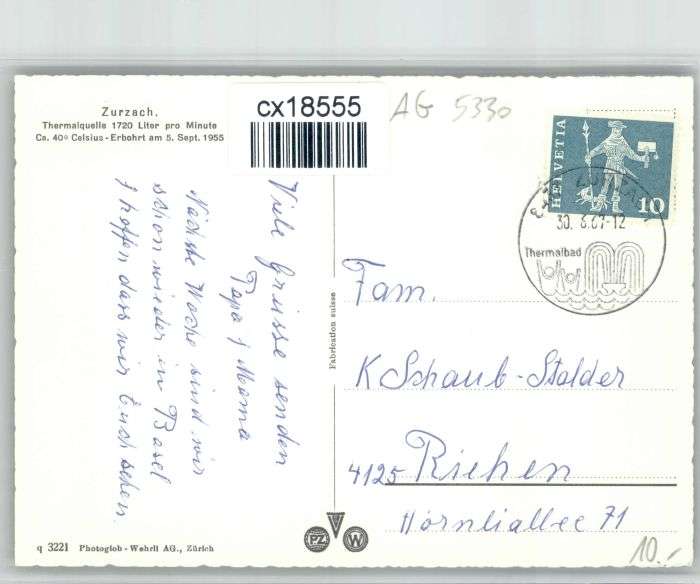 Zurzach.
Thermalquelle 1720 Liter pro Minute
Ca. 40° Celsius - Erbohrt am 5. Sept. 1955
cx18555
AG 5330
HELVETIA
10
30. 8.67-12
Thermalbad
Viele Grüsse senden
Papa & Mama
Nächste Woche sind wir
schon wieder in Basel
& hoffen dass wir Euch sehen.
Fabrication suisse
Fam.
K Schaub-Stalder
4125 Riehen
Hörnliallee 71
PZ
W
q 3221 Photoglob-Wehrli AG., Zürich
10.-